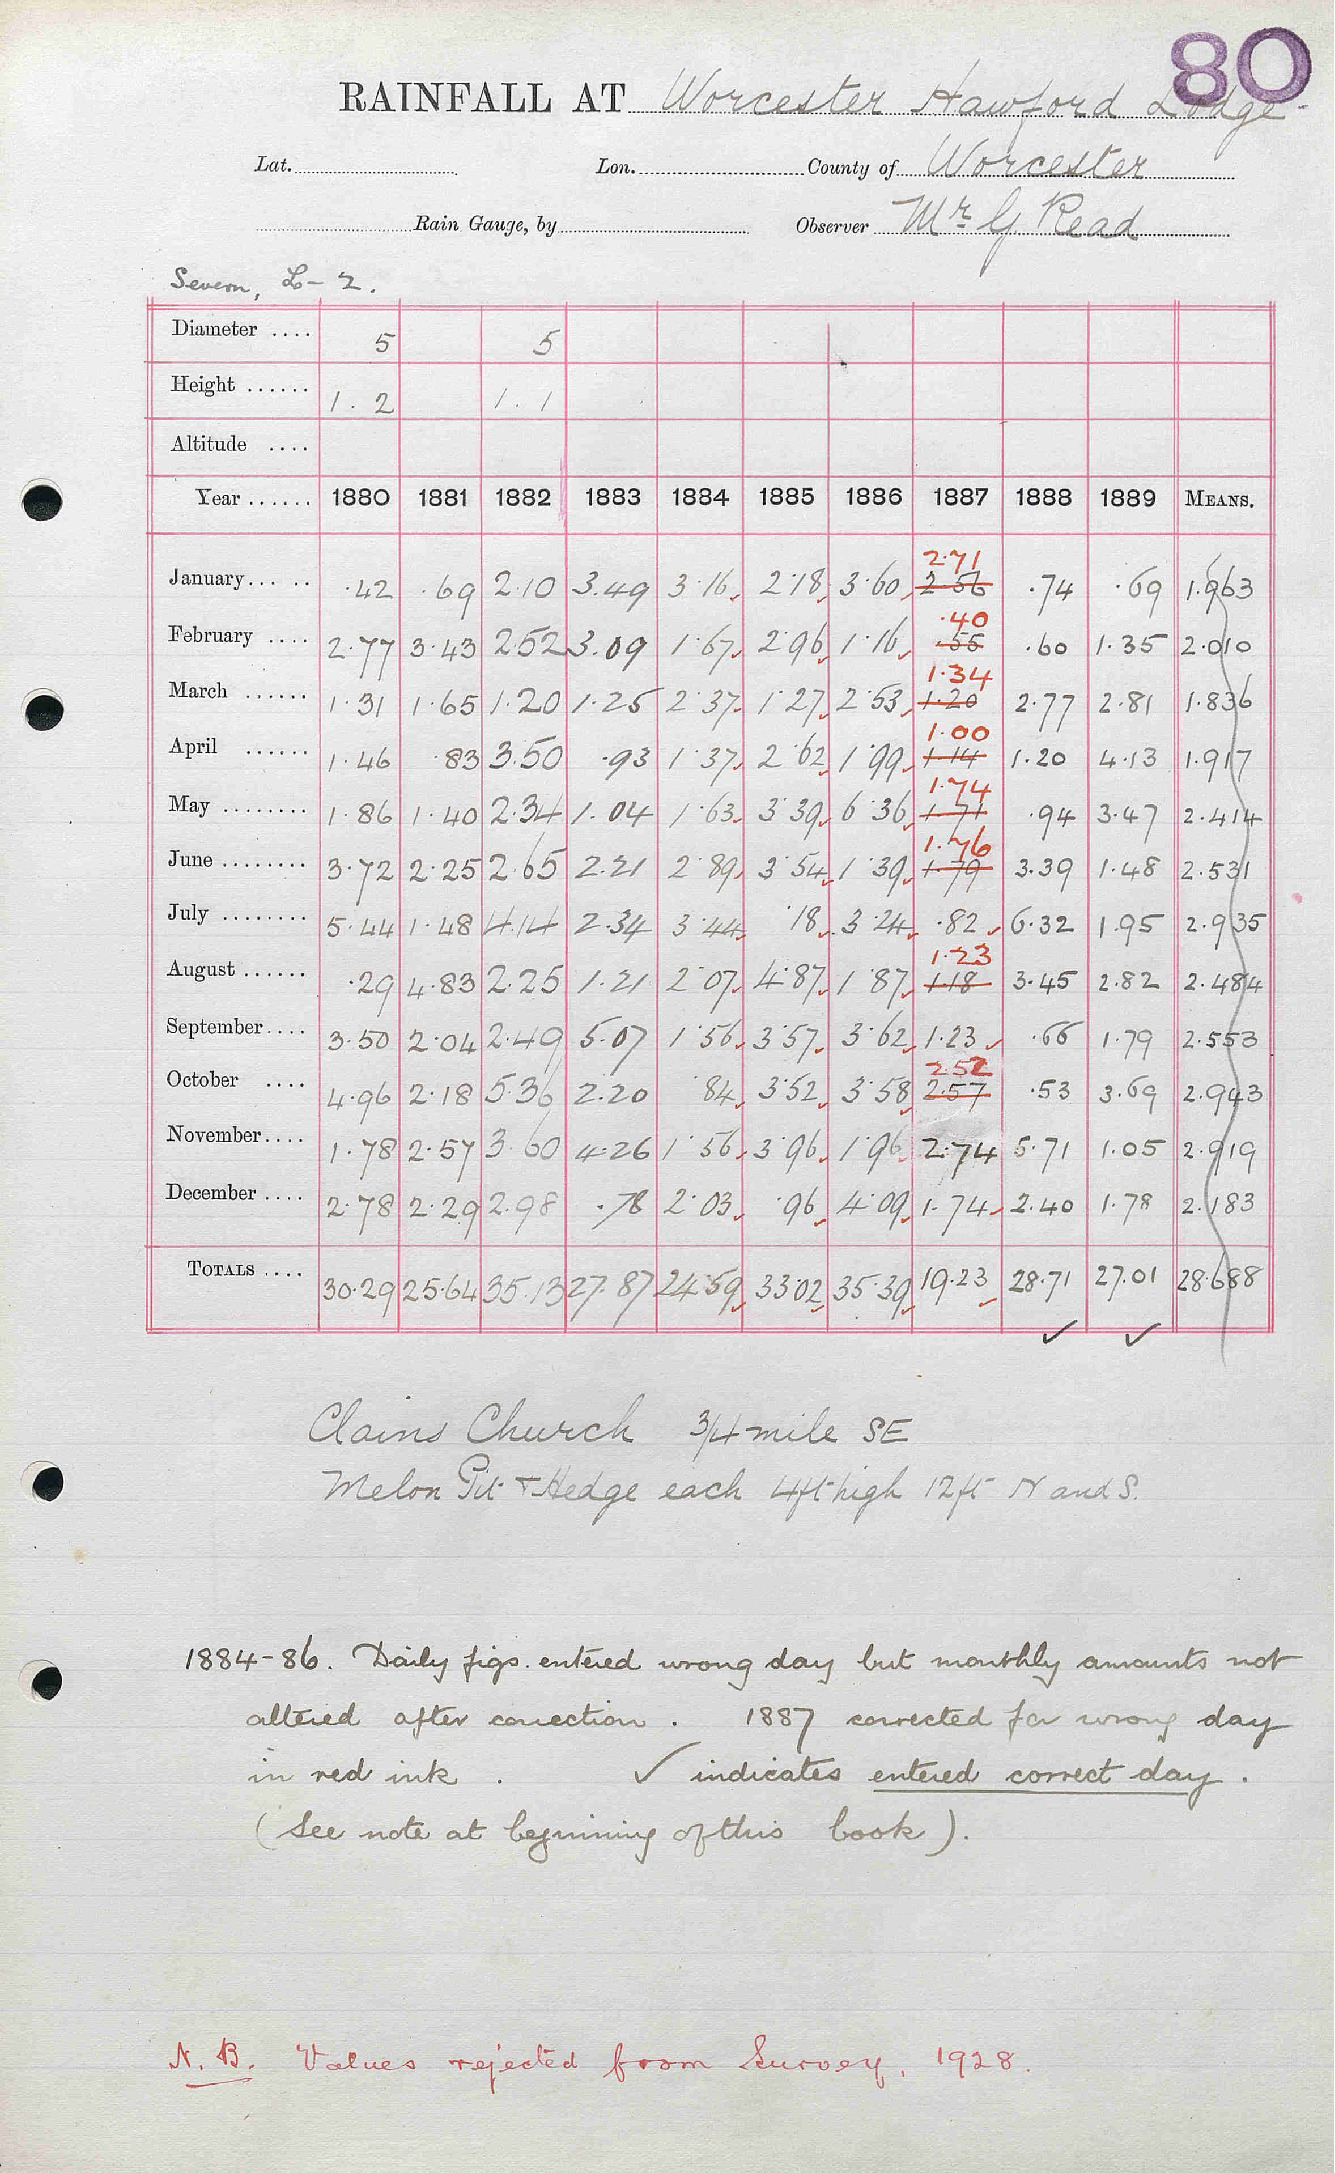 80
RAINFALL AT Worcester Hawford Lodge
Lat. Lon. County of Worcester
Rain Gauge, by Observer Mr G Read
Severn, L- 2.
Diameter .... 5 5
Height ...... 1.2 1.1
Altitude ....
Year ...... 1880 1881 1882 1883 1884 1885 1886 1887 1888 1889 MEANS.
2.71
January... .. .42 .69 2.10 3.49 3.16 2.18 3.60 2.56 .74 .69 1.963
.40
February .... 2.77 3.43 2.52 3.09 1.67 2.96 1.16 .55 .60 1.35 2.010
1.34
March ...... 1.31 1.65 1.20 1.25 2.37 1.27 2.53 1.20 2.77 2.81 1.836
1.00
April ...... 1.46 .83 3.50 .93 1.37 2.62 1.99 1.14 1.20 4.13 1.917
1.74
May ........ 1.86 1.40 2.34 1.04 1.63 3.39 6.36 1.71 .94 3.47 2.414
1.76
June ........ 3.72 2.25 2.65 2.21 2.89 3.54 1.39 1.79 3.39 1.48 2.531
July ........ 5.44 1.48 4.14 2.34 3.44 .18 3.24 .82 ✓ 6.32 1.95 2.935
1.23
August ...... .29 4.83 2.25 1.21 2.07 4.87 1.87 1.18 3.45 2.82 2.484
September.... 3.50 2.04 2.49 5.07 1.56 3.57 3.62 1.23 ✓ .66 1.79 2.553
2.52
October .... 4.96 2.18 5.36 2.20 84 3.52 3.58 2.57 .53 3.69 2.943
November.... 1.78 2.57 3.60 4.26 1.56 3.96 1.96 2.74 5.71 1.05 2.919
December .... 2.78 2.29 2.98 .78 2.03 .96 4.09 1.74 ✓ 2.40 1.78 2.183
TOTALS .... 30.29 25.64 35.13 27.87 24.59 33.02 35.39 19.23 ✓ 28.71 27.01 28.688
✓ ✓
Clains Church 3/4 mile SE
Melon Pit & Hedge each 4ft high 12ft N and S.
1884-86. Daily figs. entered wrong day but monthly amounts not
altered after correction. 1887 corrected for wrong day
in red ink. ✓ indicates entered correct day.
(See note at beginning of this book).
N.B. Values rejected from Survey, 1928.